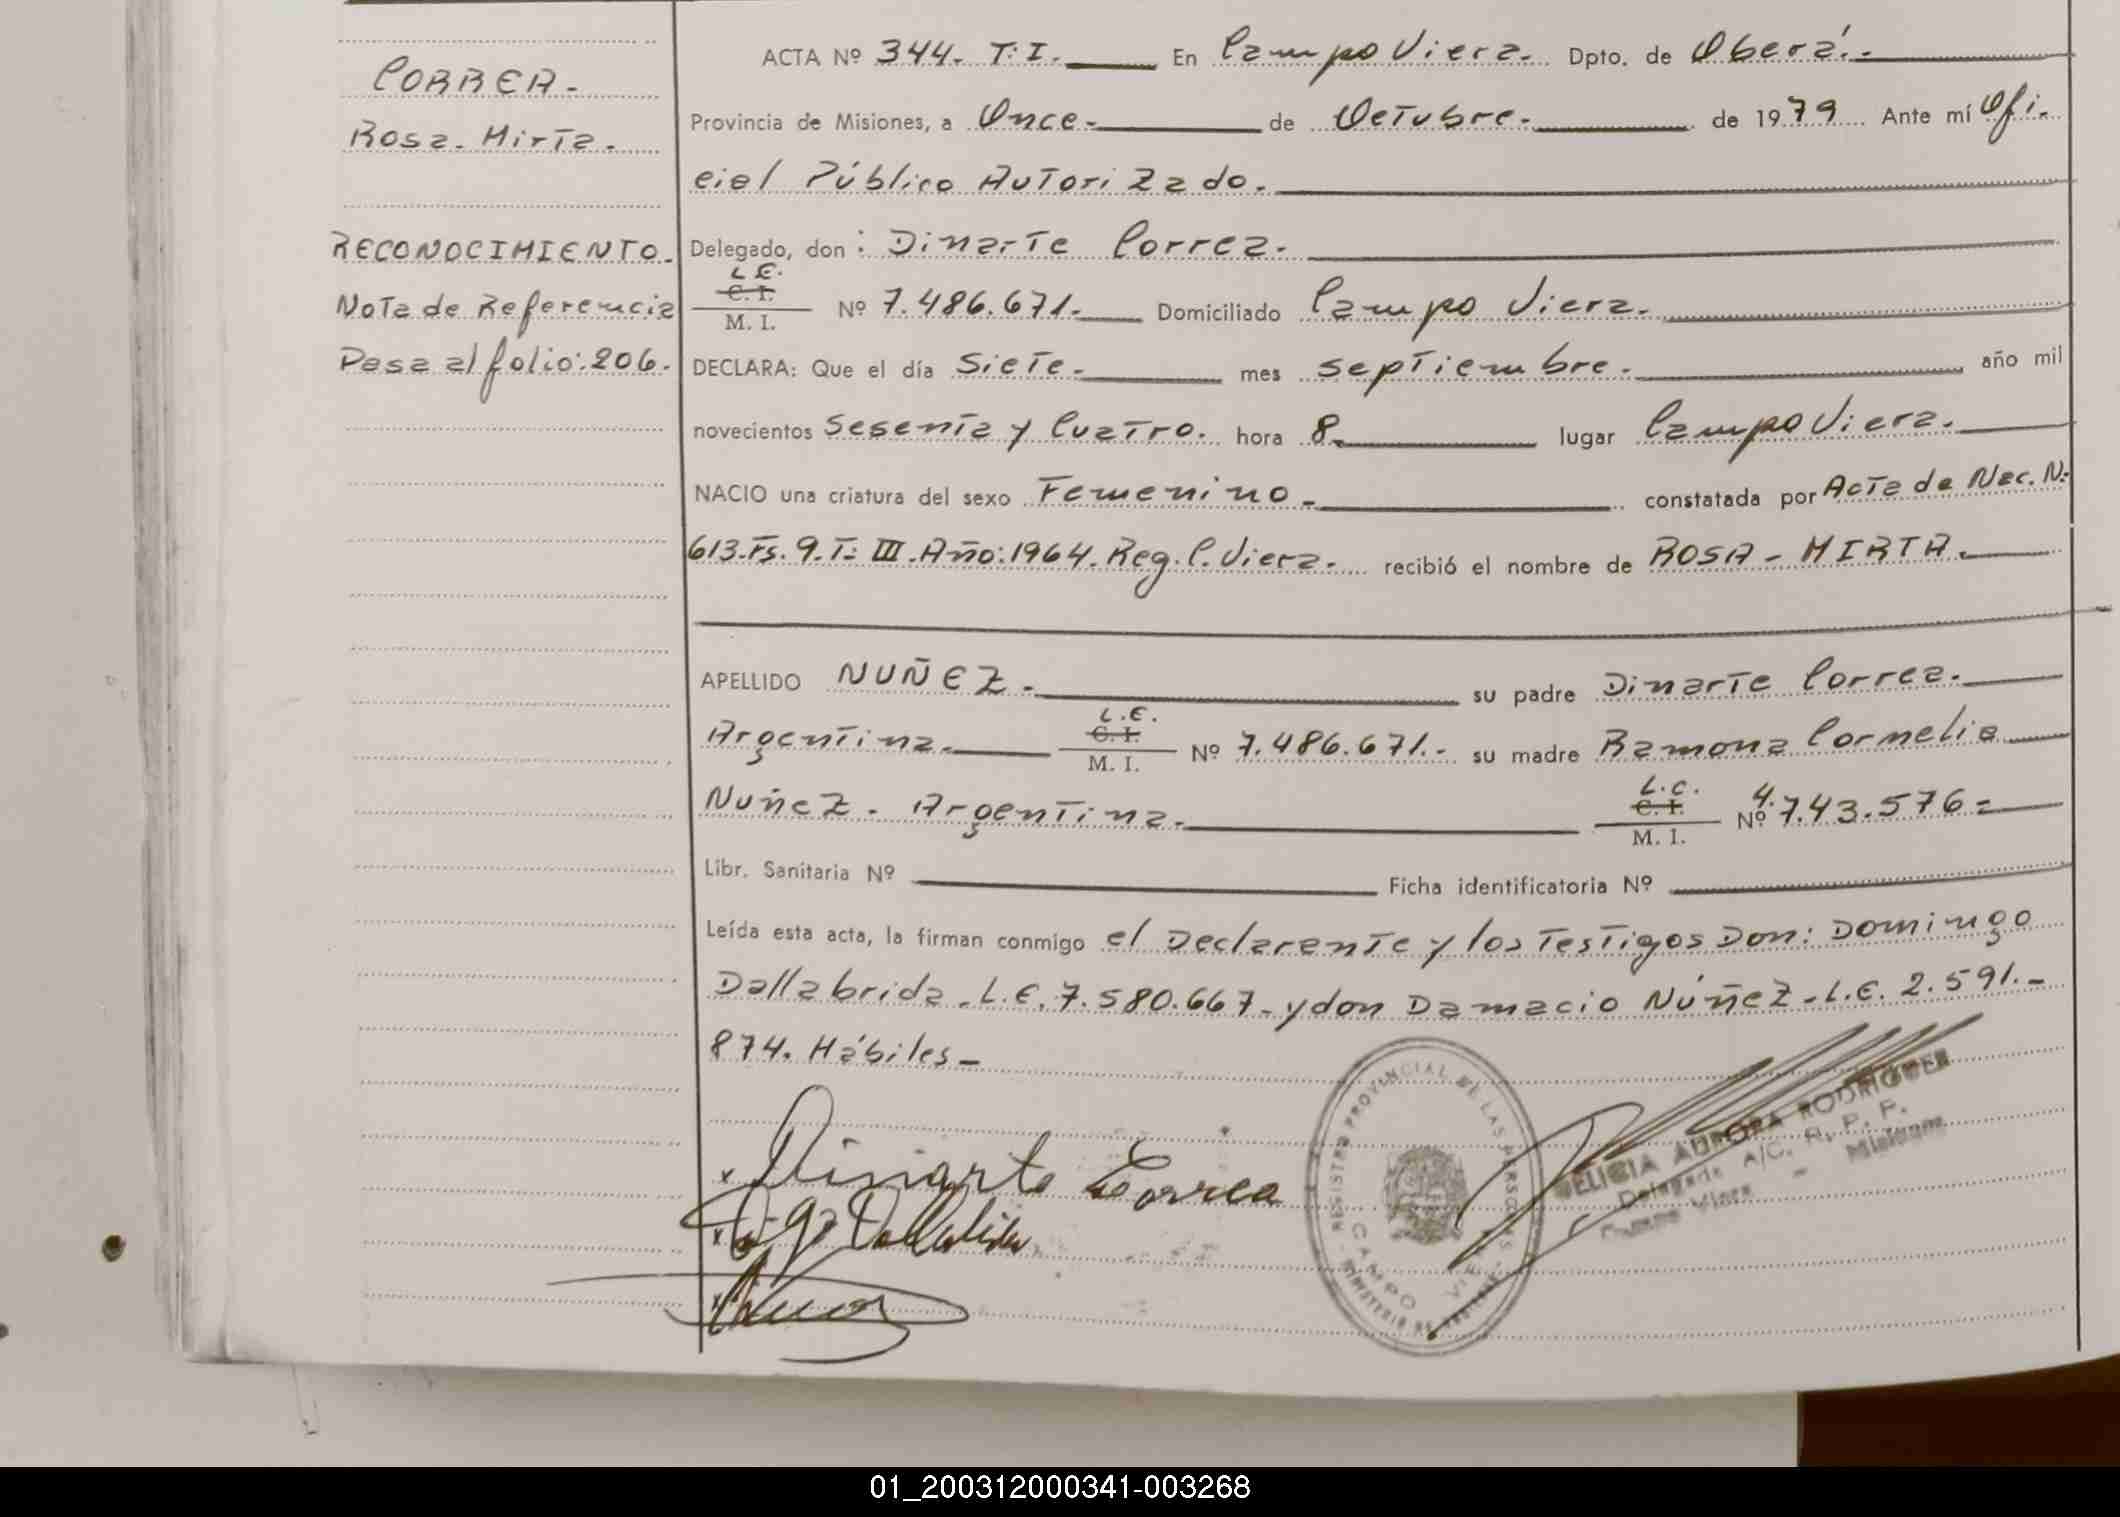 CORREA.
Rosa. Mirta.
RECONOCIMIENTO.
Nota de Referencia
Pasa al folio: 206.
ACTA Nº 344. T: I. En Campo Viera. Dpto. de Oberá.
Provincia de Misiones, a Once. de Octubre. de 1979 Ante mí Ofi.
cial Público Autorizado.
Delegado, don : Dinarte Correa.
L.E.
C. I.
M. I.
Nº 7.486.671. Domiciliado Campo Viera.
DECLARA: Que el día Siete. mes septiembre. año mil
novecientos Sesenta y Cuatro. hora 8. lugar Campo Viera.
NACIO una criatura del sexo Femenino. constatada por Acta de Nac. N:
613. Fs. 9. T: III. Año: 1964. Reg. C. Viera. recibió el nombre de ROSA - MIRTA.
APELLIDO NUÑEZ. su padre Dinarte Correa.
L.E.
Argentina. C. I. Nº 7.486.671.- su madre Ramona Cornelia
M. I.
L.C.
Nuñez. Argentina. C. I. Nº 4.743.576.=
M. I.
Libr. Sanitaria Nº Ficha identificatoria Nº
Leída esta acta, la firman conmigo el Declarante y los Testigos Don: Domingo
Dallabrida. L.E. 7.580.667. y don Damacio Núñez. L.E. 2.591.-
874. Hábiles-
x Diniarte Correa
REGISTRO PROVINCIAL DE LAS PERSONAS
CAMPO VIERA
MINISTERIO DE
DELICIA AURORA RODRIGUEZ
Delegada A/C. R. P. P.
Campo Viera - Misiones
01_200312000341-003268